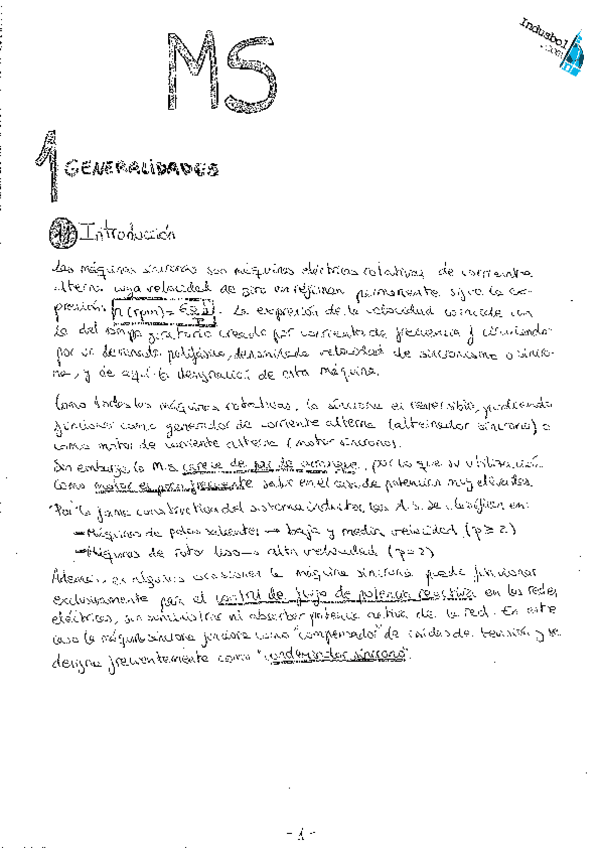 MS
Indusbol
.com
1 GENERALIDADES
1.1 Introducción
Las máquinas síncronas son máquinas eléctricas rotativas de corriente
alterna cuya velocidad de giro en régimen permanente sigue la ex-
presión n (rpm) = . La expresión de la velocidad coincide con
la del campo giratorio creado por corriente de frecuencia f circulando
por un devanado polifásico, denominada velocidad de sincronismo o síncro-
na, y de aquí la designación de esta máquina.
Como todas las máquinas rotativas, la síncrona es reversible, pudiendo
funcionar como generador de corriente alterna (alternador síncrono) o
como motor de corriente alterna (motor síncrono).
Sin embargo la M.S carece de par de arranque, por lo que su utilización
como motor es poco frecuente salvo en el caso de potencias muy elevadas.
Por la forma constructiva del sistema inductor, las M.S. se clasifican en:
→Máquinas de polos salientes → baja y media velocidad (p ≥ 2)
→Máquinas de rotor liso → alta velocidad (p=2)
Además en algunas ocasiones la máquina síncrona puede funcionar
exclusivamente para el control de flujo de potencia reactiva en las redes
eléctricas, sin suministrar ni absorber potencia activa de la red. En este
caso la máquina síncrona funciona como "compensador" de caídas de tensión y se
designa frecuentemente como "condensador síncrono".
- 1 -